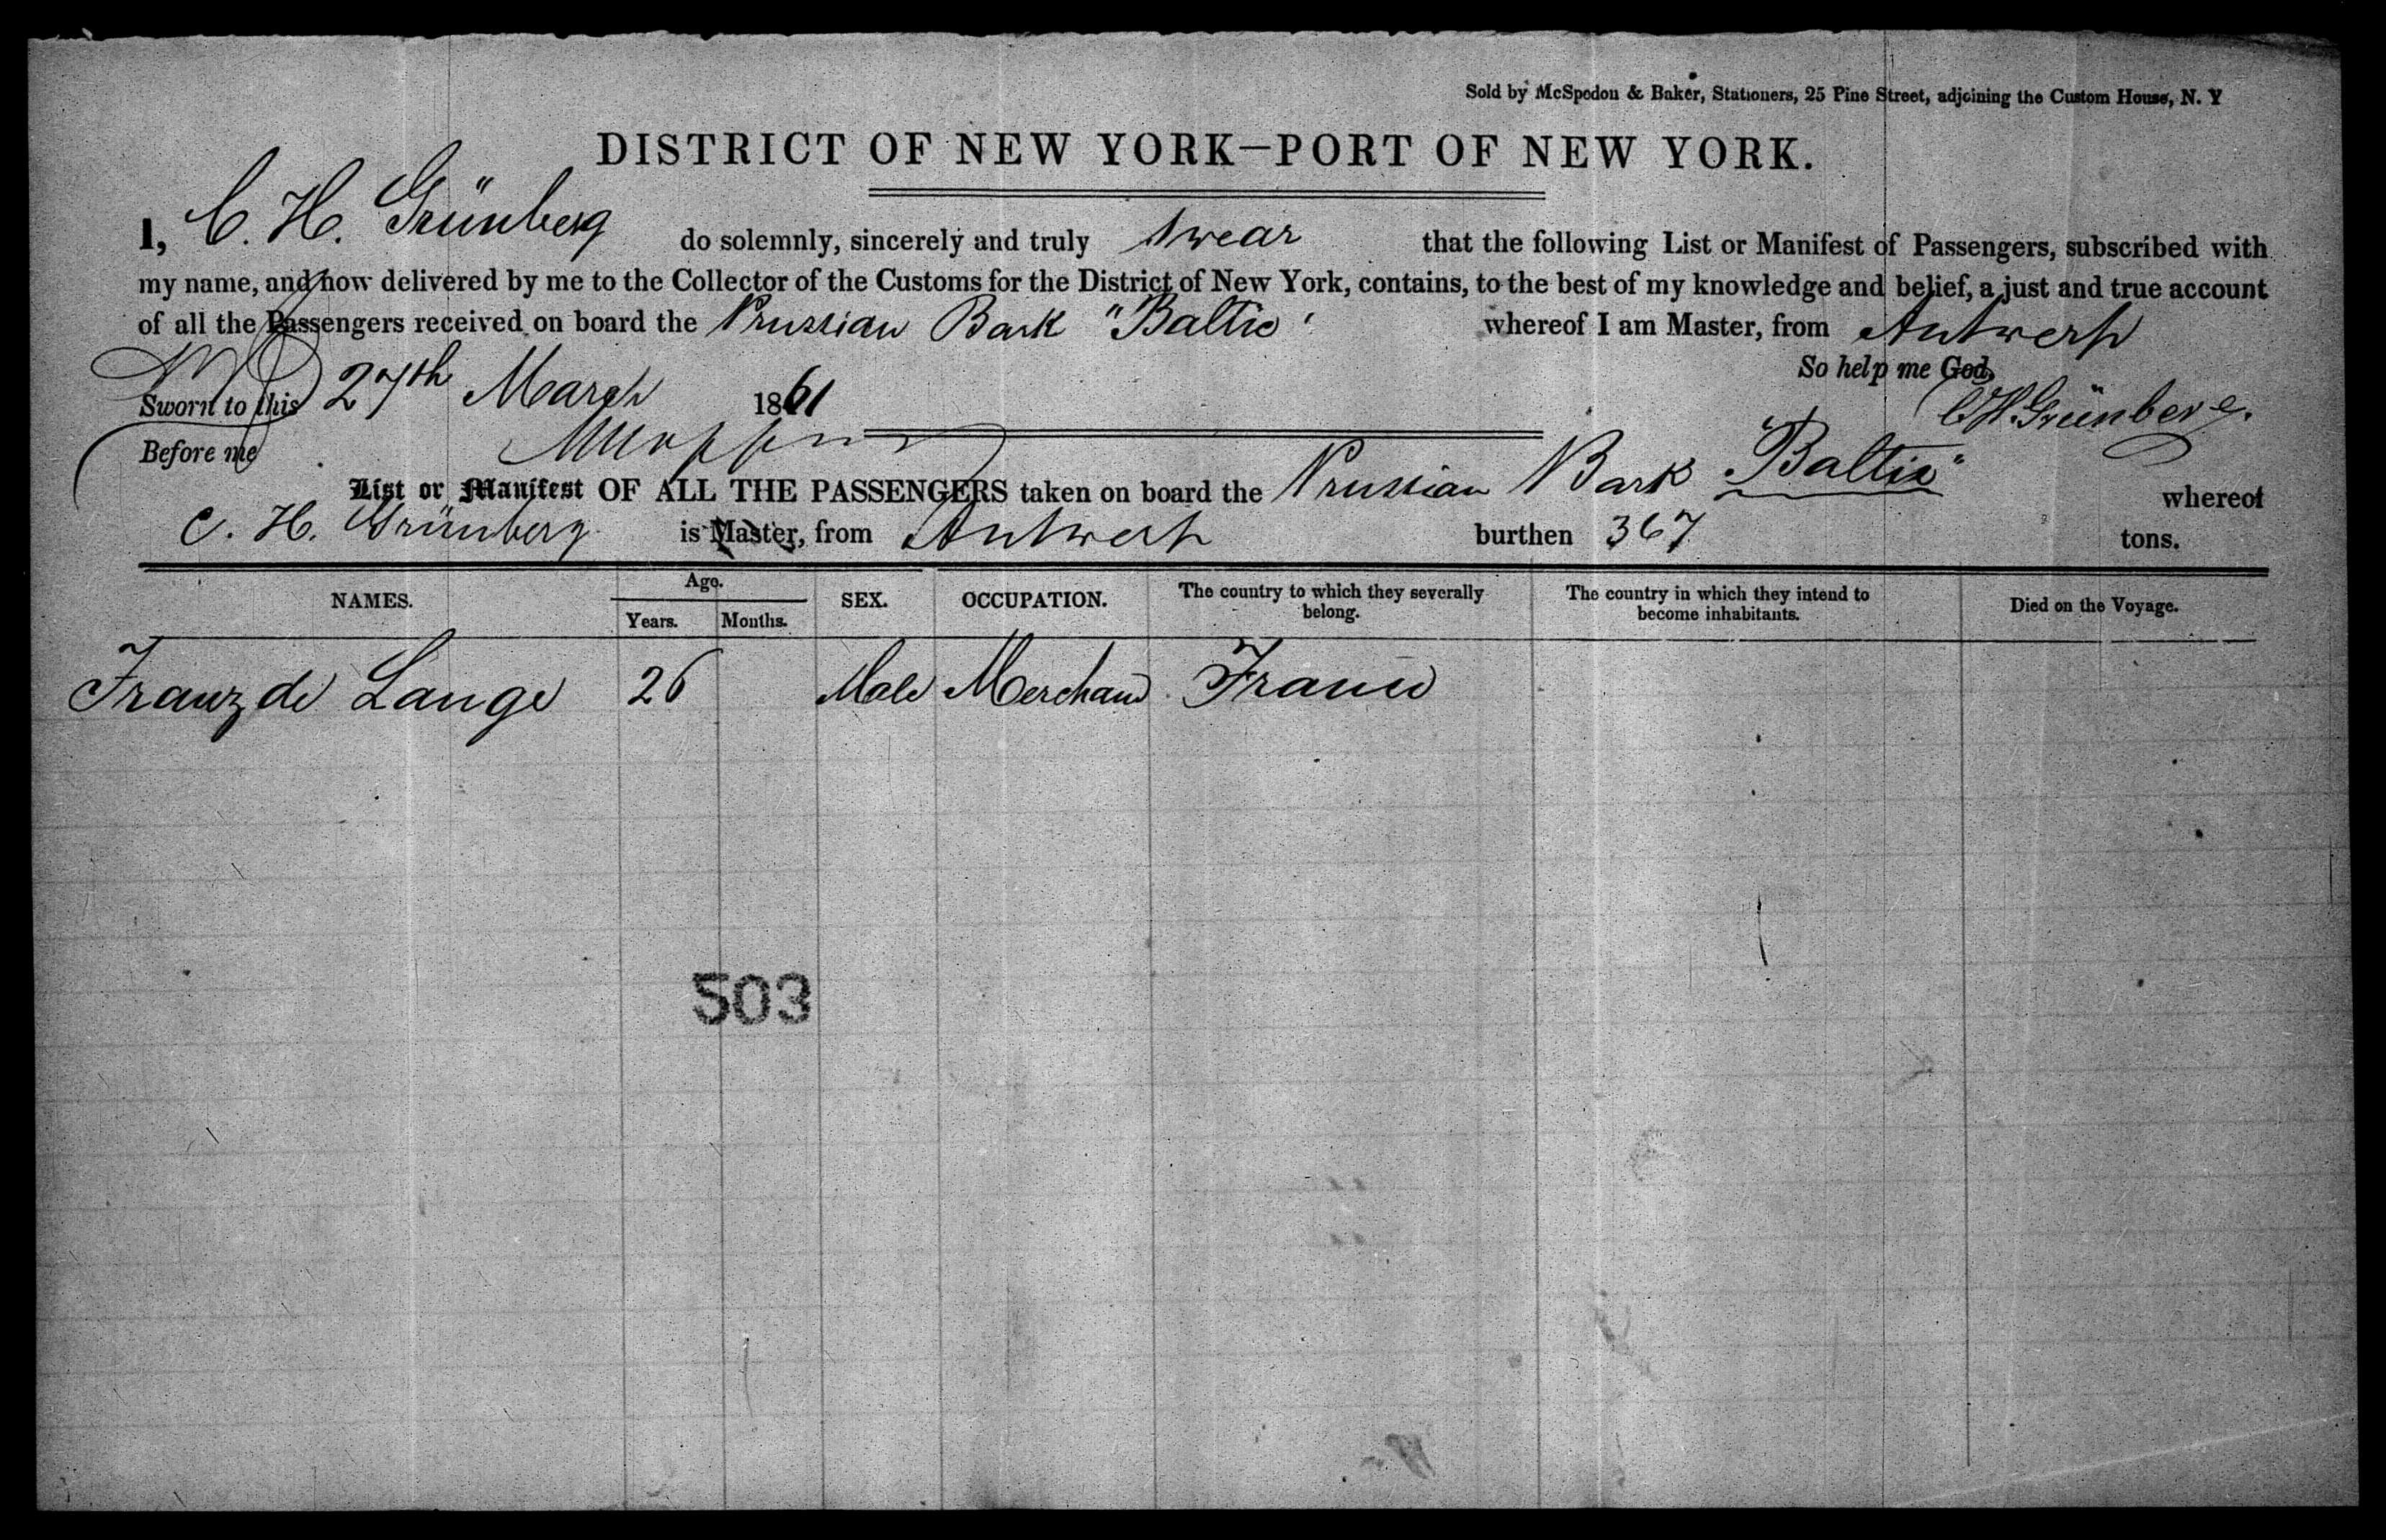 Sold by McSpedon & Baker, Stationers, 25 Pine Street, adjoining the Custom House, N. Y
DISTRICT OF NEW YORK—PORT OF NEW YORK.
I, C. H. Grünberg do solemnly, sincerely and truly swear that the following List or Manifest of Passengers, subscribed with
my name, and now delivered by me to the Collector of the Customs for the District of New York, contains, to the best of my knowledge and belief, a just and true account
of all the Passengers received on board the Prussian Bark "Baltic" whereof I am Master, from Antwerp
So help me God.
Sworn to this 27th March 1861
C H. Grünberg.
Before me
List or Manifest OF ALL THE PASSENGERS taken on board the Prussian Bark "Baltic" whereof
C. H. Grünberg is Master, from Antwerp burthen 367 tons.
NAMES. Age. Years. Months. SEX. OCCUPATION. The country to which they severally belong. The country in which they intend to become inhabitants. Died on the Voyage.
Franz de Lange 26 Male Merchant France
503